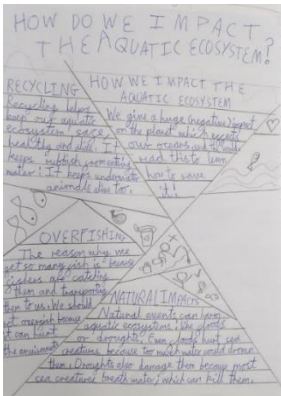 HOW DO WE IMPACT
THE AQUATIC ECOSYSTEM?
RECYCLING
Recycling helps
keep our aquatic
ecosystem safe,
healthy and alive! It
keeps rubbish from entering
water! It keeps underwater
animals alive too!
HOW WE IMPACT THE
AQUATIC ECOSYSTEM
We give a huge (negative) impact
on the planet which affects
our oceans and
read this to learn
how to save
it!
OVERFISHING
The reason why we
get so many fish is because
fishers are catching
them and transporting
them to us. We should
not overfish because
it can hurt
the environment
NATURAL IMPACTS
Natural events can harm
aquatic ecosystems like floods
or droughts! Even floods hurt sea
creatures because too much water could drown
them. Droughts also damage them because most
sea creatures breath water, which can kill them.